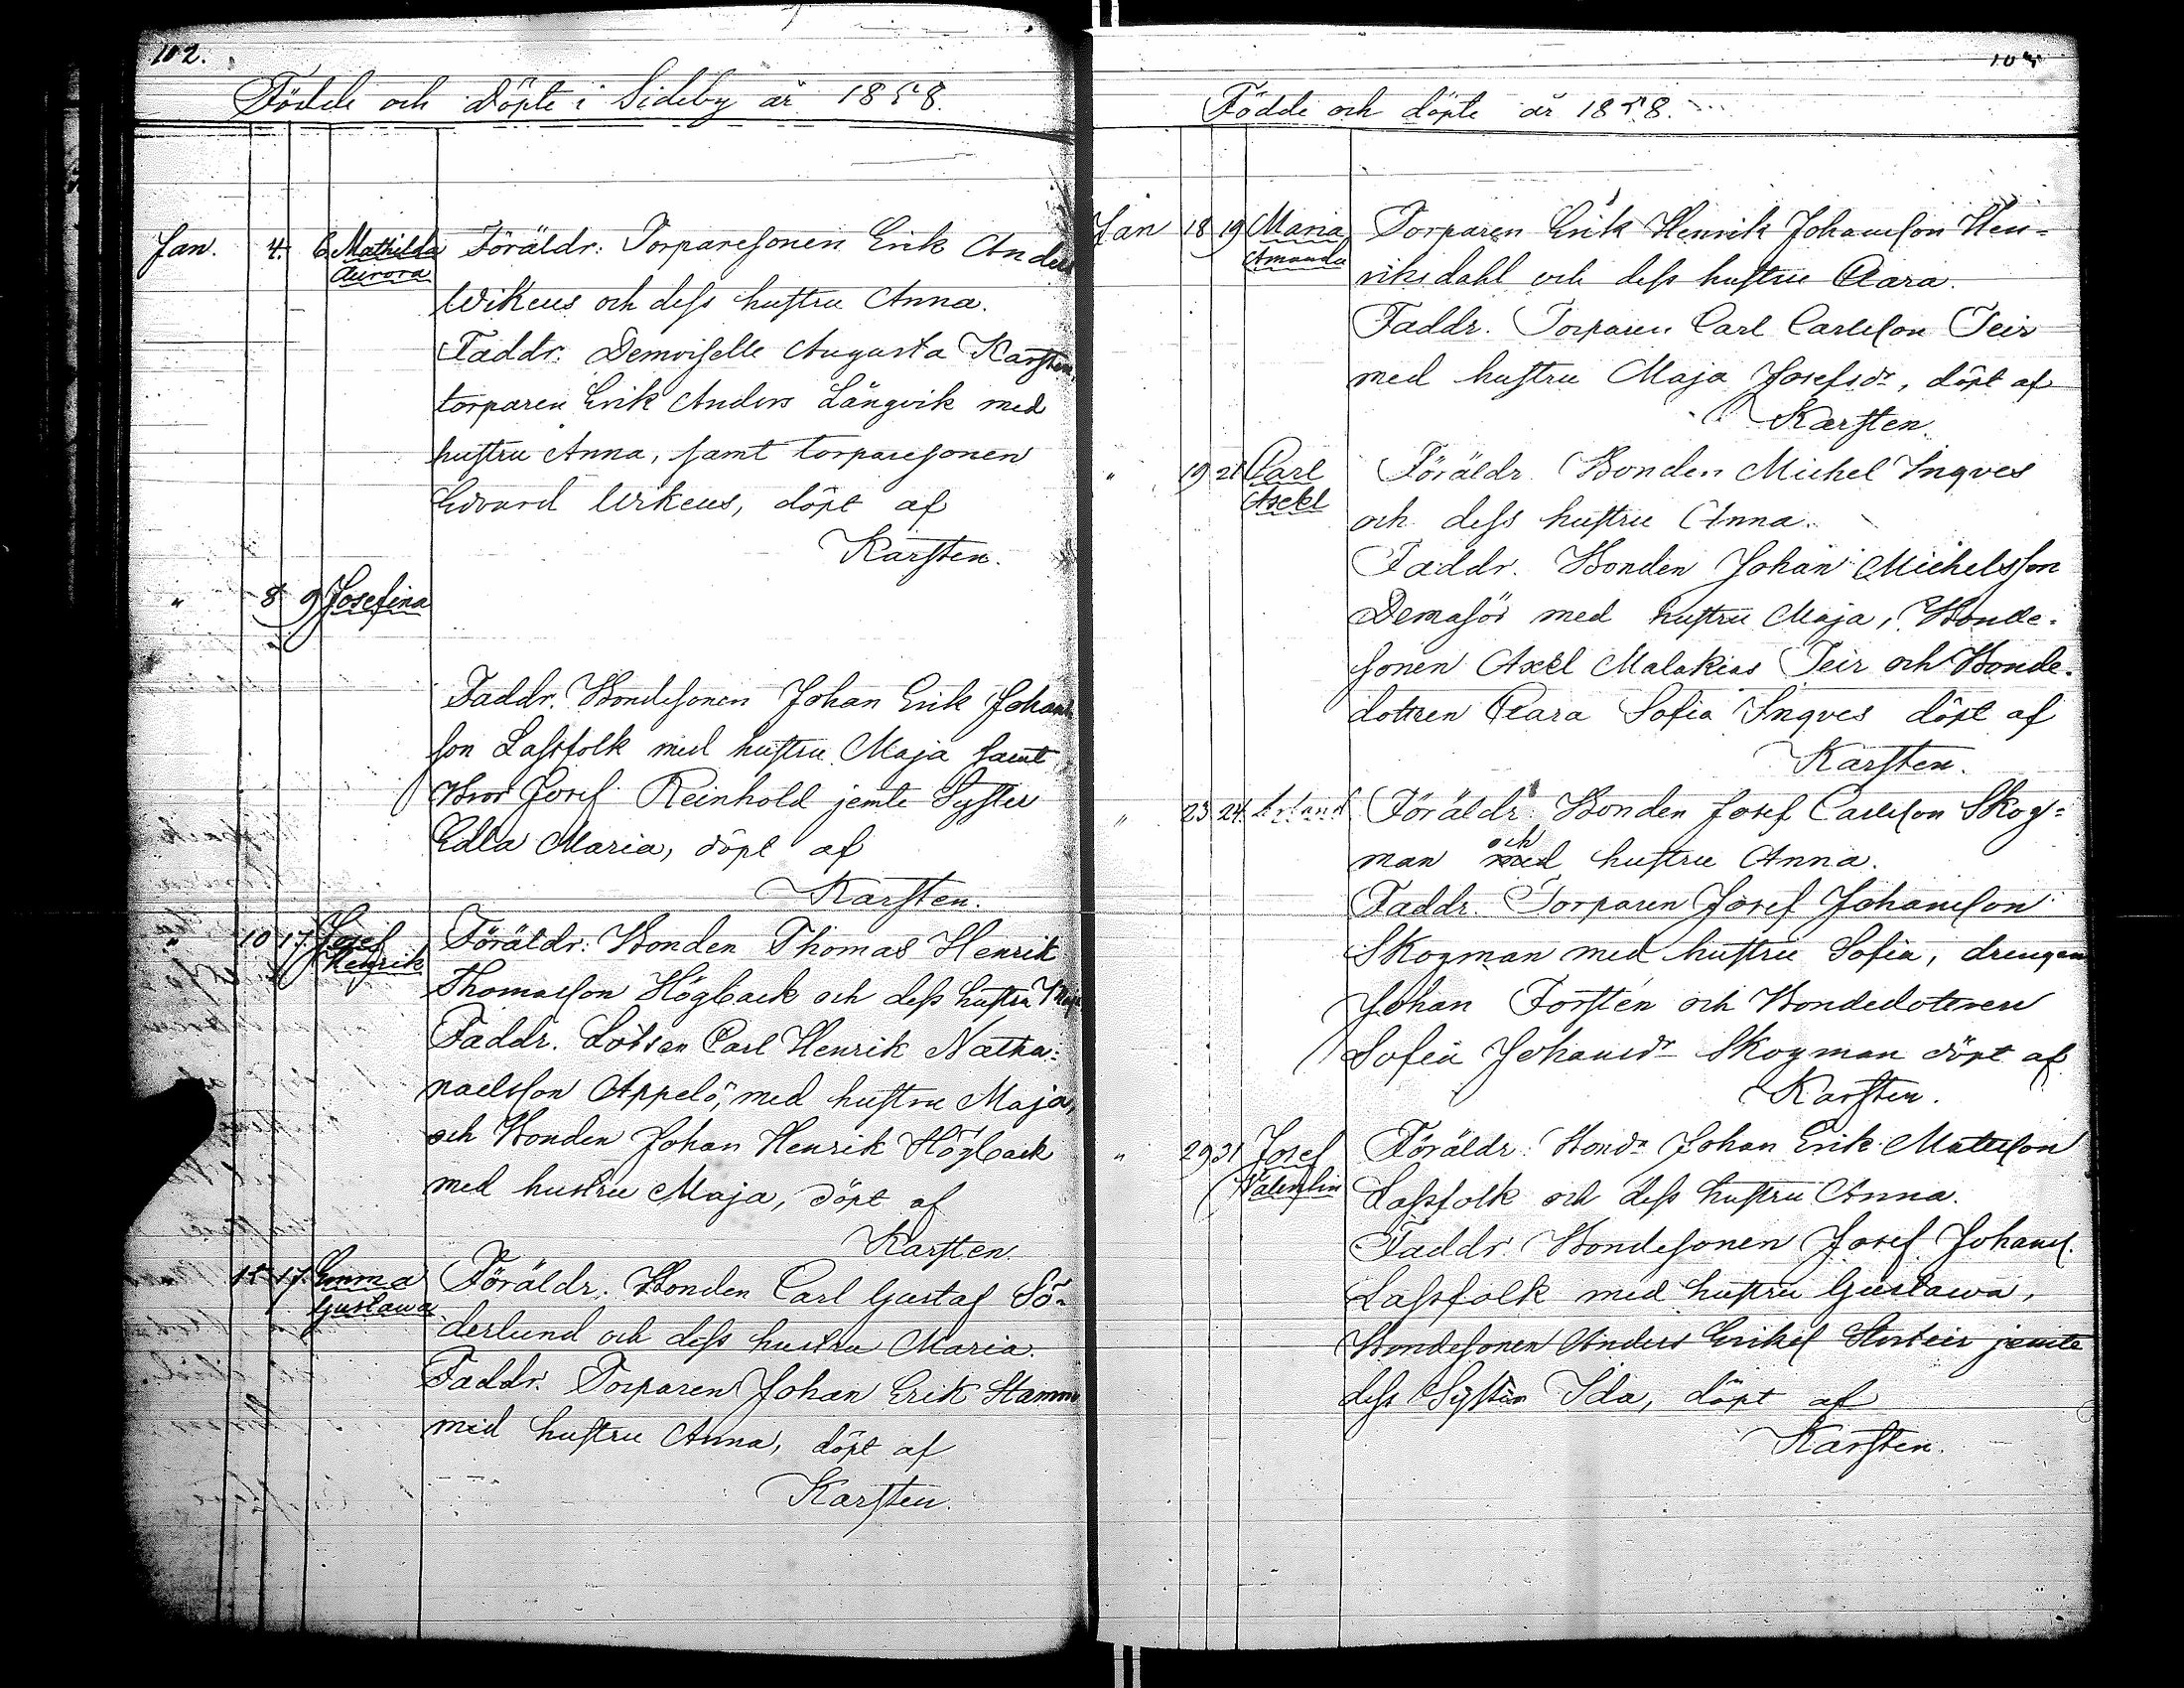 102.
Födde och döpte i Sideby år 1858.
Jan. 4. 6 Mathilda Aurora Föräldr: Torparesonen Erik Anders
Wikeus och dess hustru Anna.
Faddr: Demoiselle Augusta Karsten,
torparen Erik Anders Långvik med
hustru Anna, samt torparesonen
Edvard Wikeus, döpt af
Karsten.
" 8 9 Josefina
Faddr. Bondesonen Johan Erik Johans
son Lassfolk med hustru Maja samt
Bror Josef Reinhold jemte Syster
Edla Maria, döpt af
Karsten.
" 10 17 Josef Henrik Föräldr: Bonden Thomas Henrik
Thomasson Högback och dess hustru Maja
Faddr. Lotsen Carl Henrik Natha-
naelsson Appelö, med hustru Maja,
och Bonden Johan Henrik Högback
med hustru Maja, döpt af
Karsten
" 15 17. Emma Gustawa Föräldr. Bonden Carl Gustaf Sö-
derlund och dess hustru Maria.
Faddr. Torparen Johan Erik Stamm
med hustru Anna, döpt af
Karsten.
Födde och döpte år 1858.
Jan 18 19 Maria Amanda Torparen Erik Henrik Johansson Hen-
riksdahl och dess hustru Clara.
Faddr. Torparen Carl Carlsson Teir
med hustru Maja Josefsdr, döpt af
Karsten.
" 19 21 Carl Axel Föräldr. Bonden Michel Ingves
och dess hustru Anna.
Faddr. Bonden Johan Michelsson
Demasör med hustru Maja, Bonde-
sonen Axel Malakias Teir och Bonde-
dottren Clara Sofia Ingves döpt af
Karsten.
" 23 24. Erland Föräldr. Bonden Josef Carlsson Skog-
och
man med hustru Anna.
Faddr. Torparen Josef Johansson
Skogman med hustru Sofia, drengen
Johan Forstén och Bondedottren
Sofia Johansdr Skogman döpt af
Karsten.
" 29 31 Josef Valentin Föräldr: Bondn Johan Erik Matsson
Lassfolk och dess hustru Anna.
Faddr. Bondesonen Josef Johans.
Lassfolk med hustru Gustawa,
Bondesonen Anders Eriks Storteir jemte
dess Syster Ida, döpt af
Karsten.